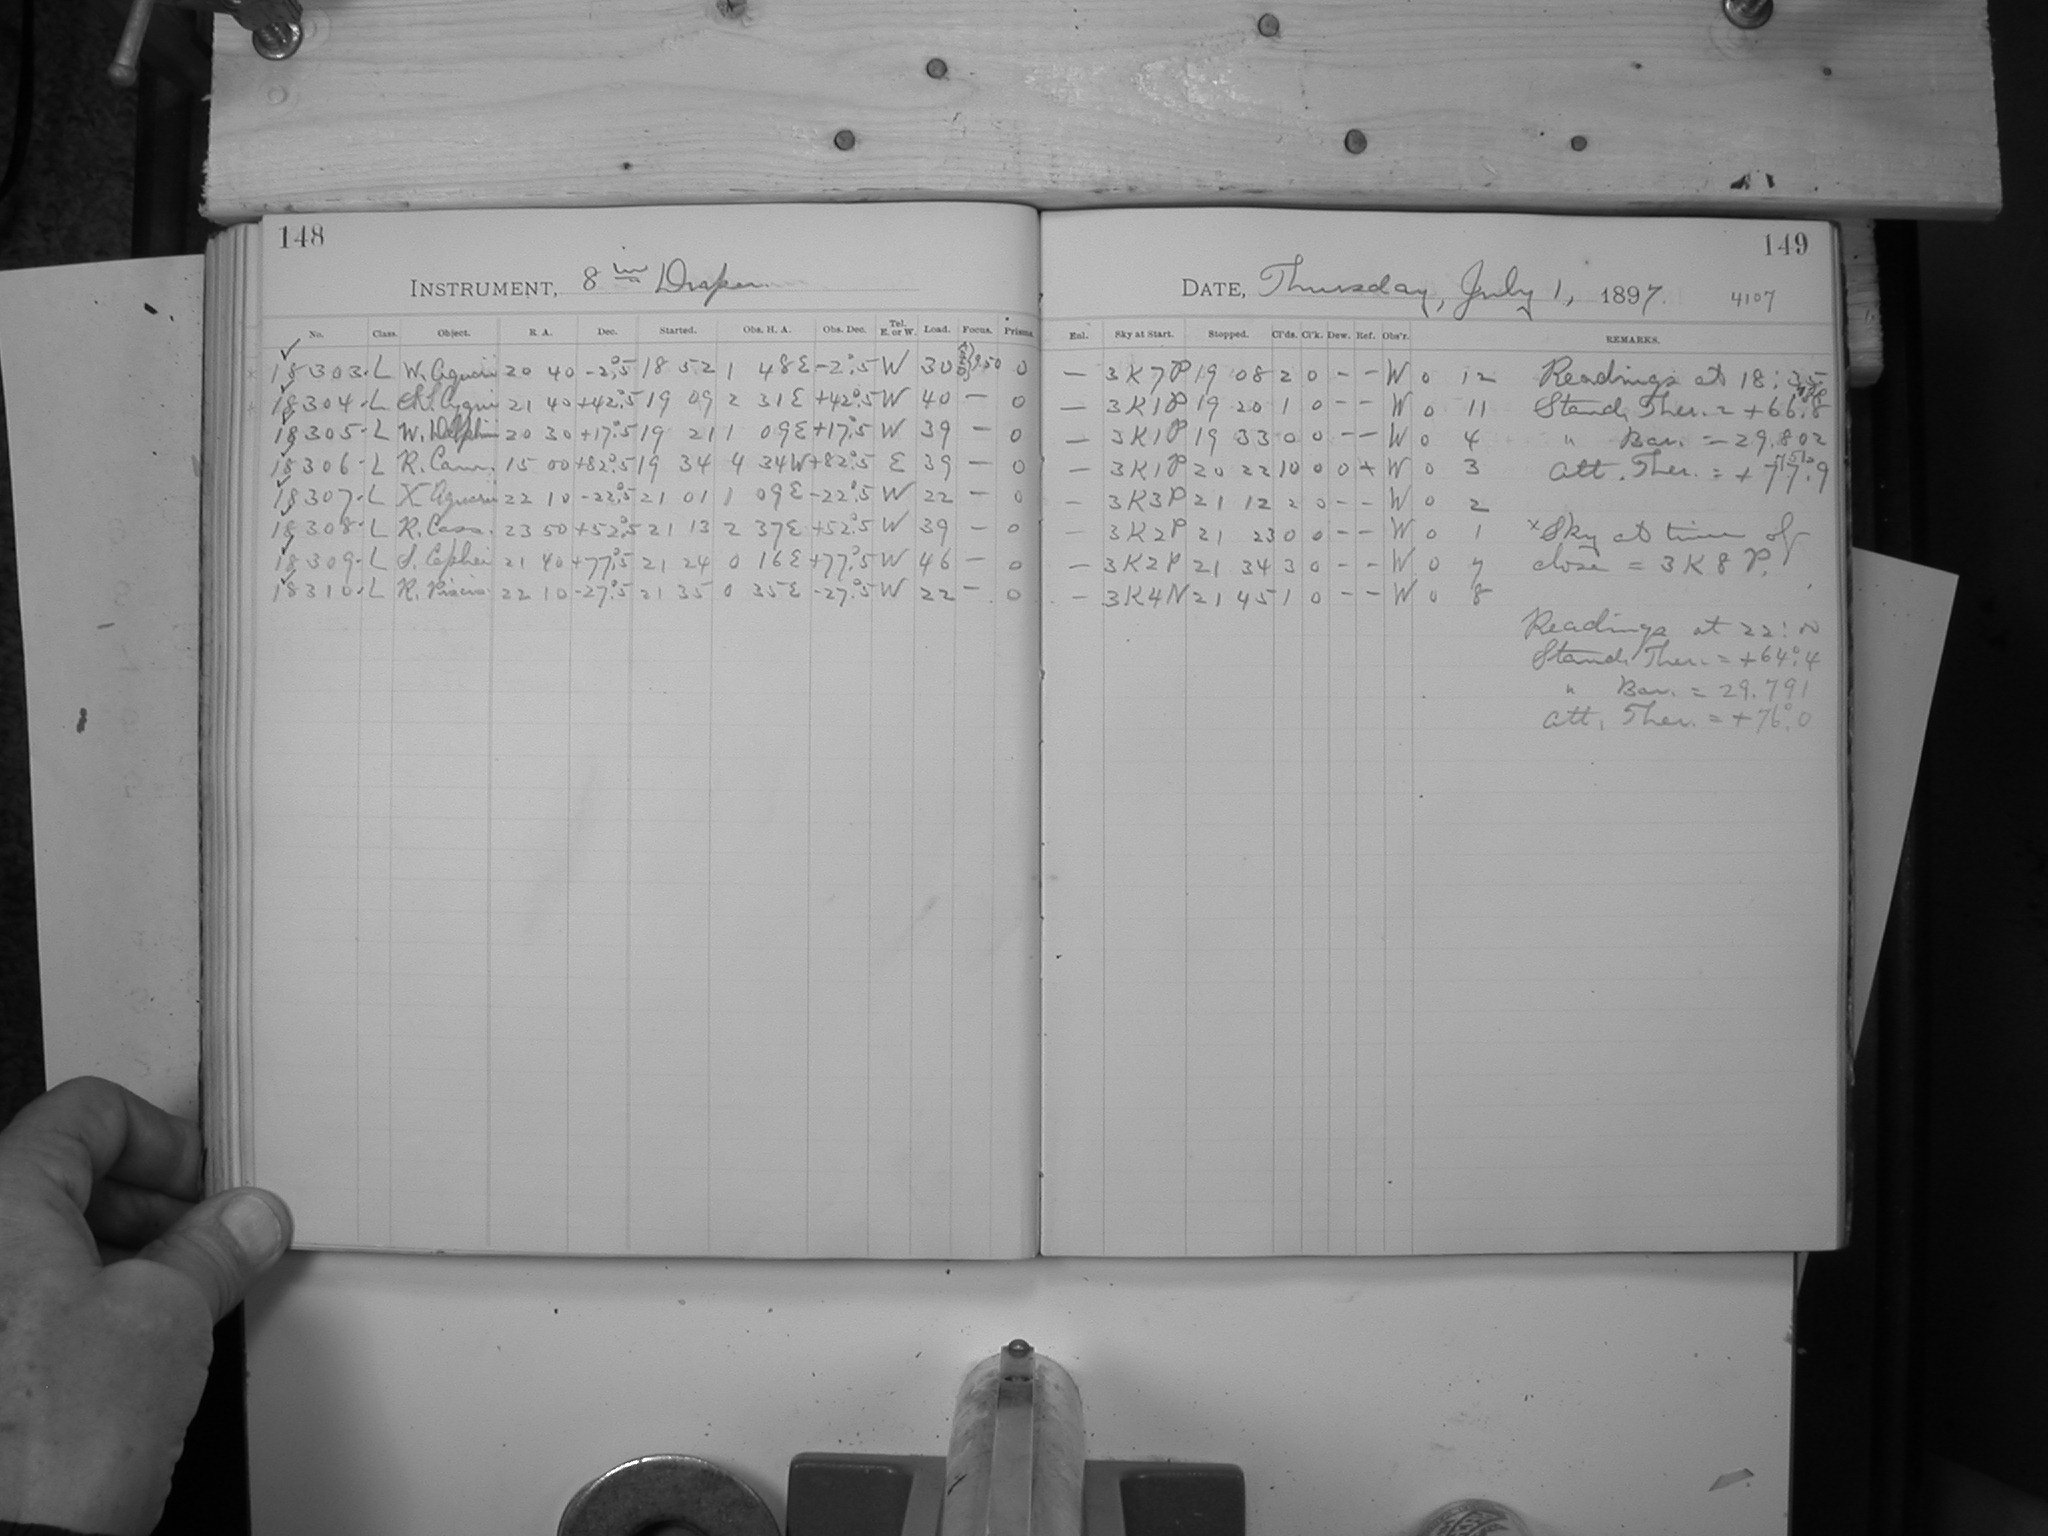 148
INSTRUMENT, 8 in Draper.
No. Class. Object. R. A. Dec. Started. Obs. H. A. Obs. Dec. Tel. E. or W. Load. Focus. Prisms.
18303 L W. Aquarii 20 40 -2°.5 18 52 1 48E -2°.5 W 30 9.50 0
18304 L 21 40 +42°.5 19 09 2 31E +42°.5 W 40 — 0
18305 L W. Delphin 20 30 +17°.5 19 21 1 09E +17°.5 W 39 — 0
18306 L R. Cam. 15 00 +82°.5 19 34 4 34W +82°.5 E 39 — 0
18307 L X Aquarii 22 10 -22°.5 21 01 1 09E -22°.5 W 22 — 0
18308 L R. Cass. 23 50 +52°.5 21 13 2 37E +52°.5 W 39 — 0
18309 L S. Cephei 21 40 +77°.5 21 24 0 16E +77°.5 W 46 — 0
18310 L R. Piscis 22 10 -27°.5 21 35 0 35E -27°.5 W 22 — 0
149
DATE, Thursday, July 1, 1897. 4107
Enl. Sky at Start. Stopped. Cl'ds. Cl'k. Dew. Ref. Obs'r. REMARKS.
— 3K7P 19 08 2 0 - - W 0 12 Readings at 18:35
— 3K1P 19 20 1 0 - - W 0 11 Stand. Ther. = +66.8
— 3K1P 19 33 0 0 - - W 0 4 " Bar. = 29.802
— 3K1P 20 22 10 0 0 + W 0 3 Att. Ther. = +77.9
— 3K3P 21 12 2 0 - - W 0 2
— 3K2P 21 23 0 0 - - W 0 1 *Sky at time of
— 3K2P 21 34 3 0 - - W 0 7 close = 3K8P.
— 3K4N 21 45 1 0 - - W 0 8
Readings at 22:00
Stand. Ther. = +64°.4
" Bar. = 29.791
Att. Ther. = +76°.0